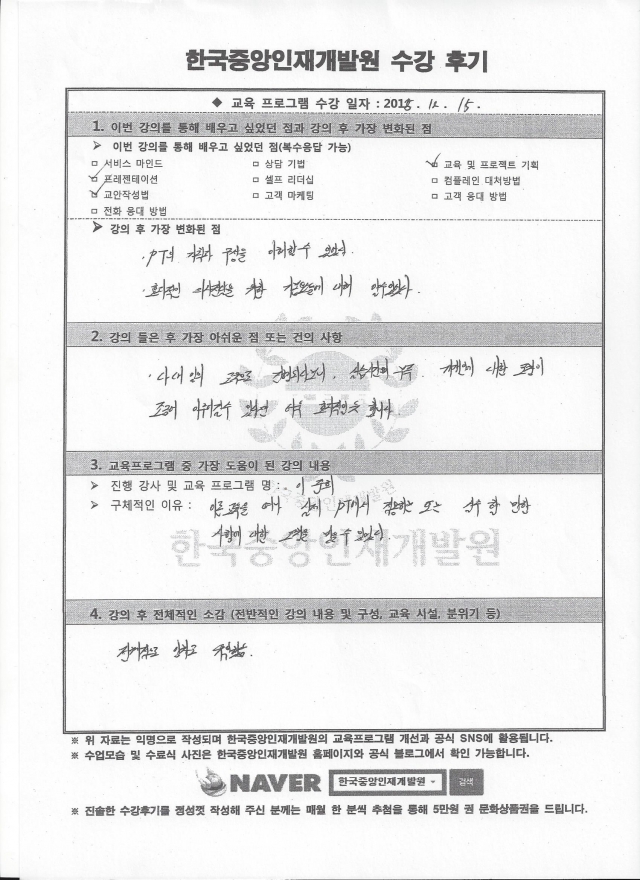 한국중앙인재개발원 수강 후기
◆ 교육 프로그램 수강 일자 : 2018. 12. 15.
1. 이번 강의를 통해 배우고 싶었던 점과 강의 후 가장 변화된 점
➢ 이번 강의를 통해 배우고 싶었던 점(복수응답 가능)
□ 서비스 마인드 □ 상담 기법 ☑ 교육 및 프로젝트 기획
☑ 프레젠테이션 □ 셀프 리더십 □ 컴플레인 대처방법
☑ 교안작성법 □ 고객 마케팅 □ 고객 응대 방법
□ 전화 응대 방법
➢ 강의 후 가장 변화된 점
· PT의 구성을 이해할 수 있었다.
· 효과적인 의사전달을 위한 대해 알수있었다.
2. 강의 들은 후 가장 아쉬운 점 또는 건의 사항
· 실습시간의 부족. 개개인에 대한
3. 교육프로그램 중 가장 도움이 된 강의 내용
➢ 진행 강사 및 교육 프로그램 명 : 이
➢ 구체적인 이유 : 실제 PT에서 또는 실수 할 만한
사항에 대한 수 있었다.
한국중앙인재개발원
4. 강의 후 전체적인 소감 (전반적인 강의 내용 및 구성, 교육 시설, 분위기 등)
전체적으로
※ 위 자료는 익명으로 작성되며 한국중앙인재개발원의 교육프로그램 개선과 공식 SNS에 활용됩니다.
※ 수업모습 및 수료식 사진은 한국중앙인재개발원 홈페이지와 공식 블로그에서 확인 가능합니다.
NAVER 한국중앙인재개발원 검색
※ 진솔한 수강후기를 정성껏 작성해 주신 분께는 매월 한 분씩 추첨을 통해 5만원 권 문화상품권을 드립니다.